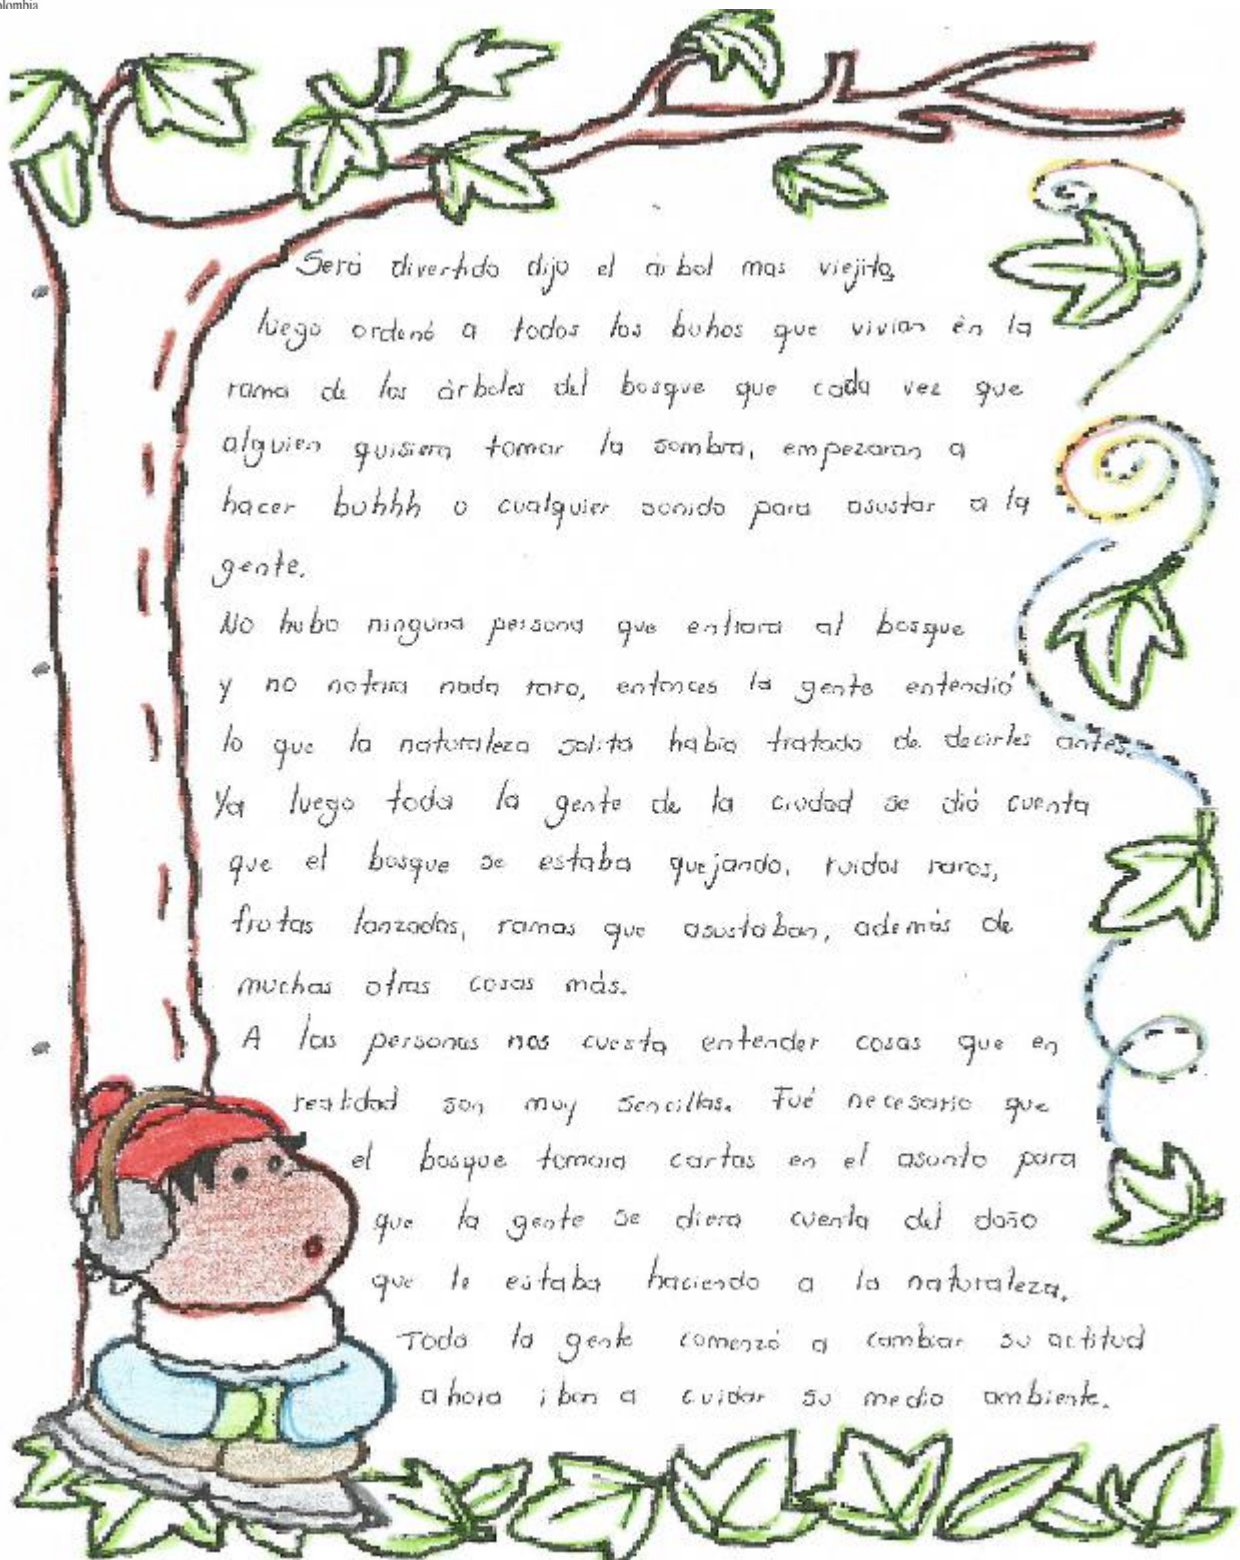 Será divertido dijo el árbol mas viejito,
luego ordenó a todos los buhos que vivian en la
rama de los árboles del bosque que cada vez que
alguien quisiera tomar la sombra, empezaran a
hacer buhhh o cualquier sonido para asustar a la
gente.
No hubo ninguna persona que entrara al bosque
y no notara nada raro, entonces la gente entendió
lo que la naturaleza solita habia tratado de decirles antes.
Ya luego toda la gente de la ciudad se dió cuenta
que el bosque se estaba quejando, ruidos raros,
frutas lanzadas, ramas que asustaban, además de
muchas otras cosas más.
A las personas nos cuesta entender cosas que en
realidad son muy sencillas. Fué necesario que
el bosque tomara cartas en el asunto para
que la gente se diera cuenta del daño
que le estaba haciendo a la naturaleza.
Toda la gente comenzó a cambiar su actitud
ahora iban a cuidar su medio ambiente.